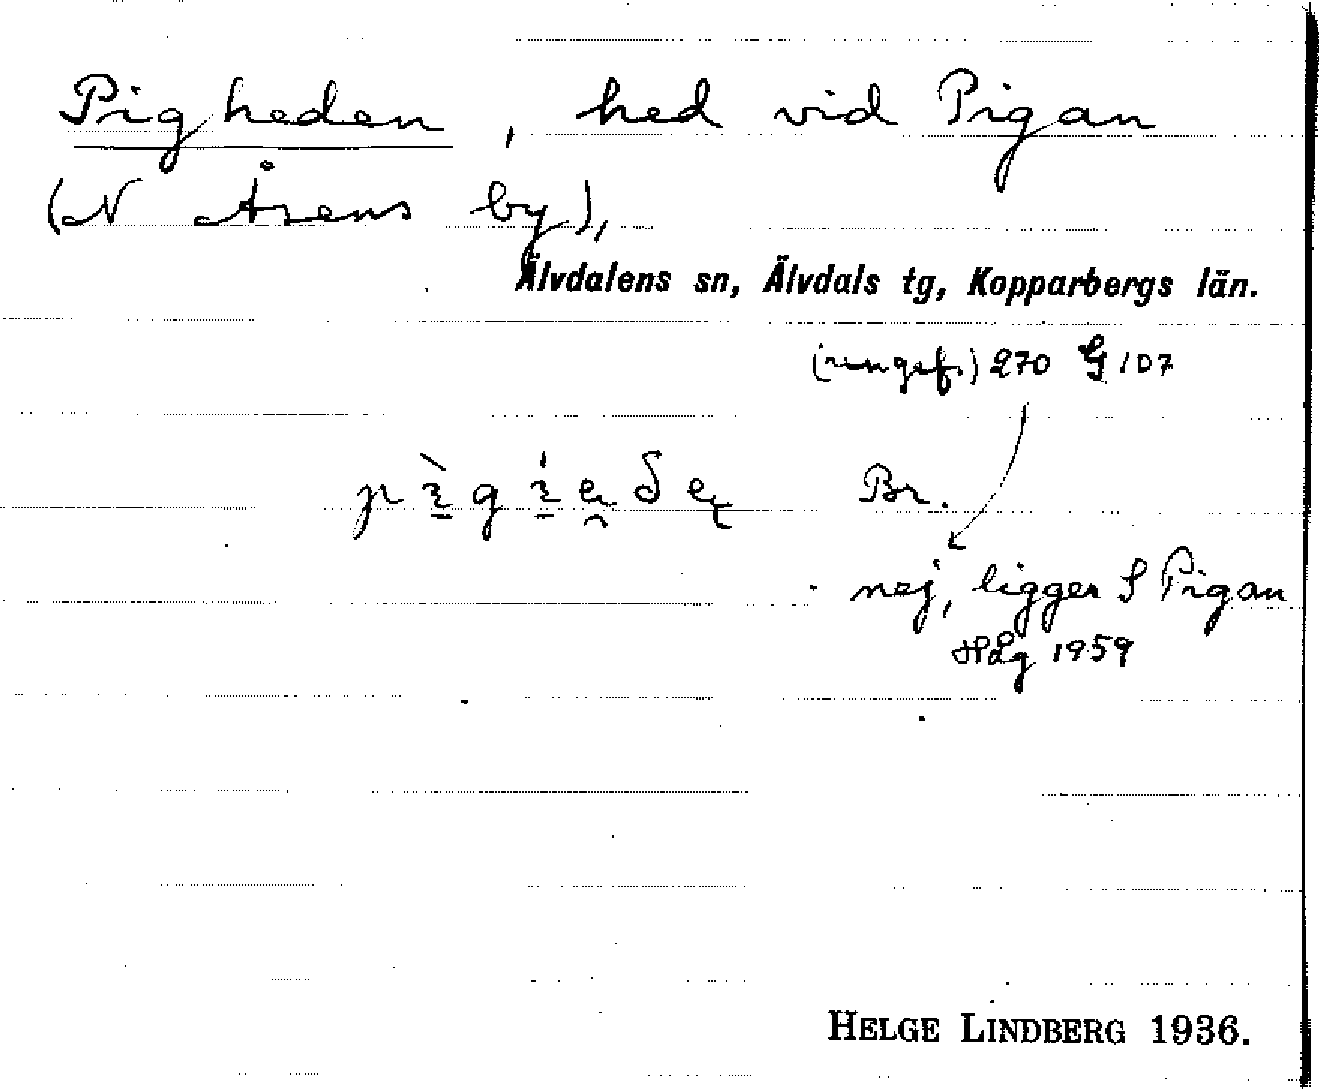 Pigheden, hed vid Pigan
(N Åsens by),
Älvdalens sn, Älvdals tg, Kopparbergs län.
(ungef.) 270 G 107
Br.
nej, ligger S Pigan
HLg 1959
HELGE LINDBERG 1936.